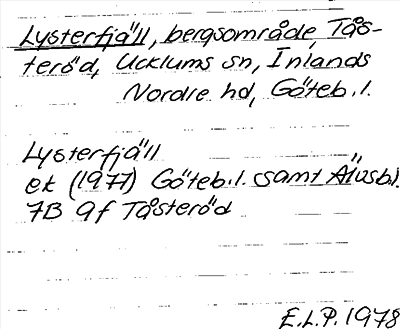 Lysterfjäll, bergsområde, Tås-
teröd, Ucklums sn, Inlands
Nordre hd, Göteb. l.
Lysterfjäll
ek (1977) Göteb. l. samt Älvsb. l.
7B 9f Tåsteröd
E.L.P. 1978